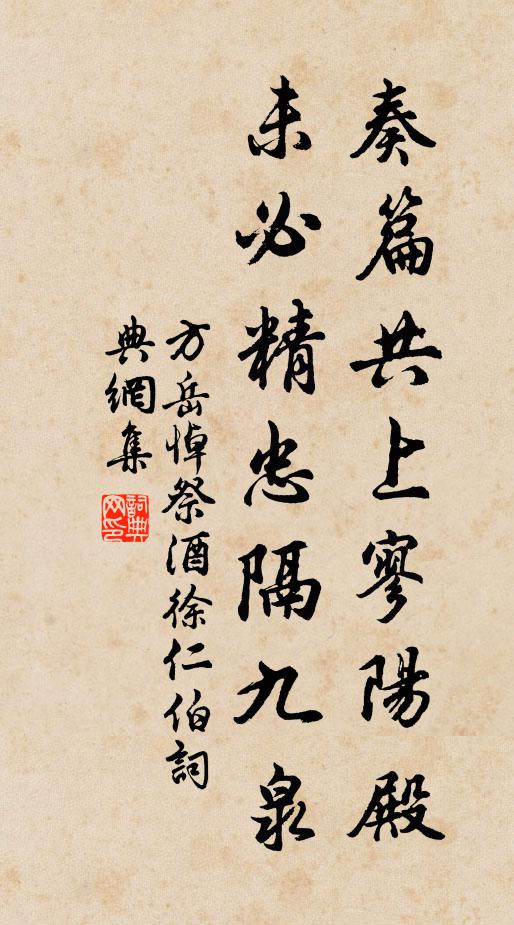 奏篇共上寥陽殿
未必精忠隔九泉
方岳悼祭酒徐仁伯詞
典網集
詞典網印